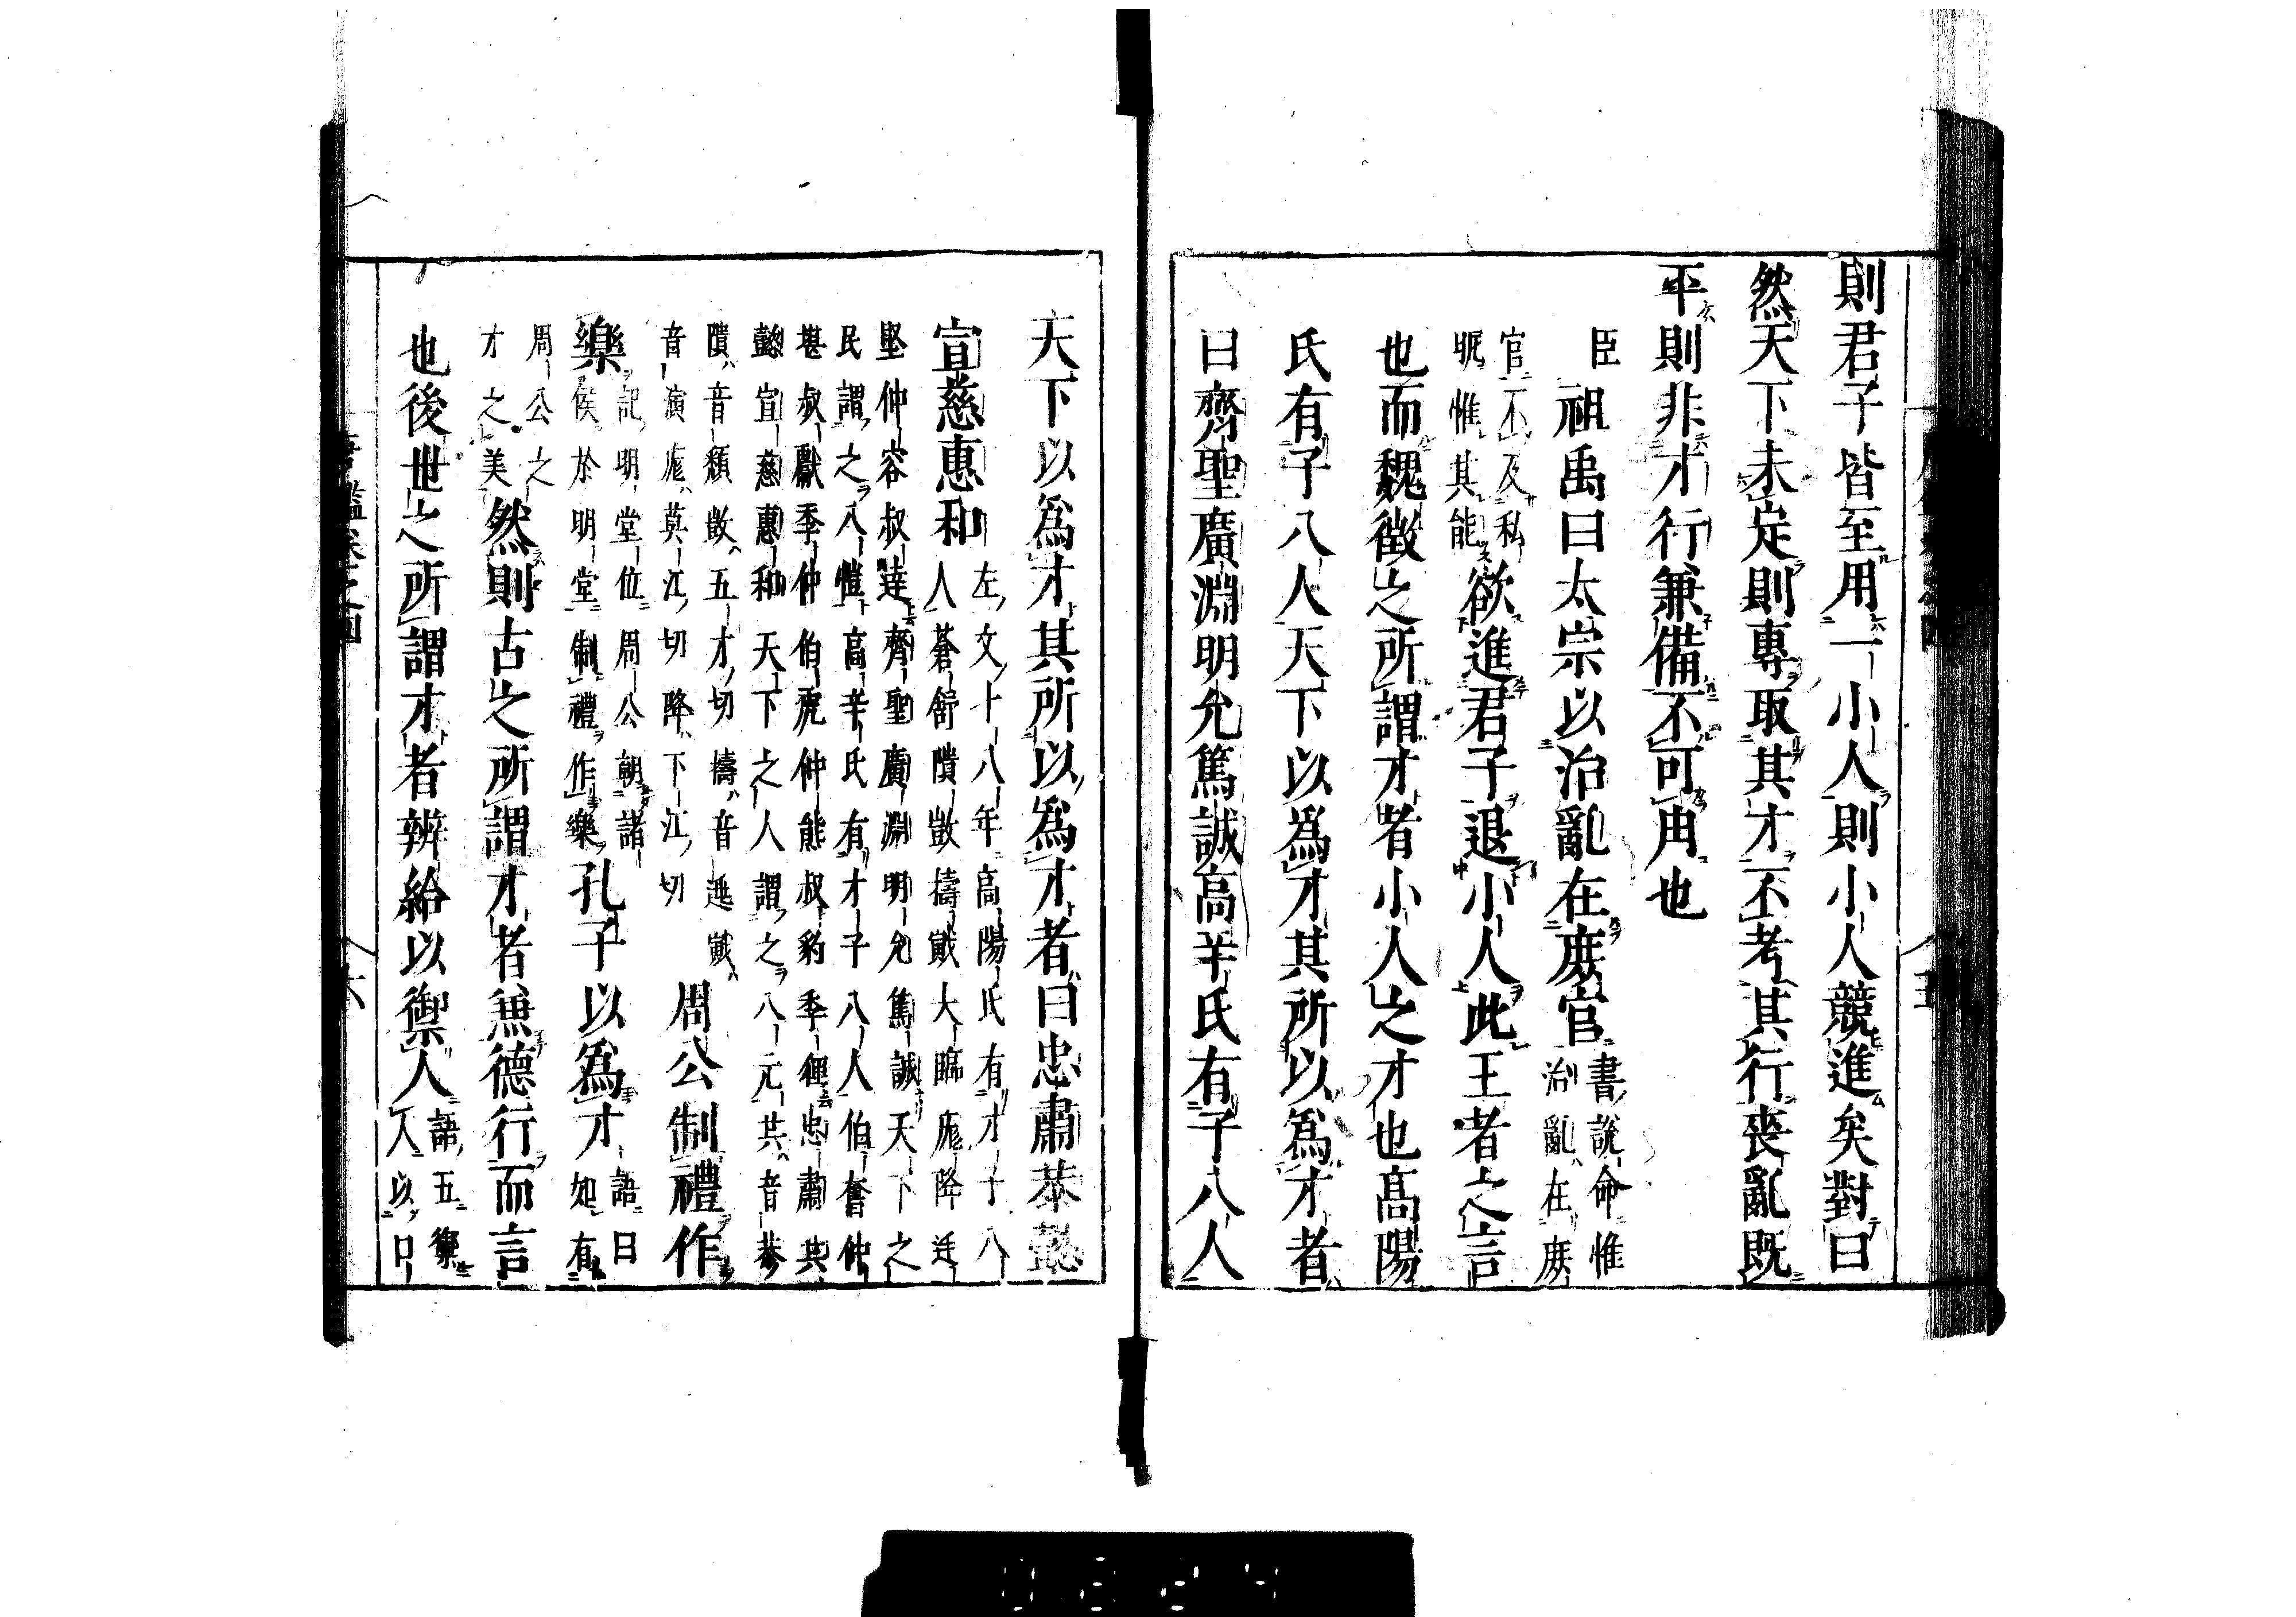 則君子皆至用一小人則小人競進矣對曰
然天下未定則專取其才不考其行喪亂既
平則非才行兼備不可用也
臣祖禹曰太宗以治亂在庶官書說命惟治亂在庶
官不及私昵惟其能欲進君子退小人此王者之言
也而魏徵之所謂才者小人之才也高陽
氏有子八人天下以爲才其所以爲才者
曰齊聖廣淵明允篤誠高辛氏有子八人
天下以爲才其所以爲才者曰忠肅恭懿
宣慈惠和左文十八年高陽氏有才子八人蒼舒隤敳擣戭大臨尨降庭
堅仲容叔達齊聖廣淵明允篤誠天下之
民謂之八愷高辛氏有才子八人伯奮仲
堪叔獻季仲伯虎仲熊叔豹季貍忠肅共
懿宣慈惠和天下之人謂之八元共音恭
隤音頹敳五才切擣音逃戭
音演尨莫江切降下江切周公制禮作
樂記明堂位周公朝諸侯於明堂制禮作樂孔子以爲才語曰如有
周公之才之美然則古之所謂才者兼德行而言
也後世之所謂才者辨給以禦人語五禦人以口